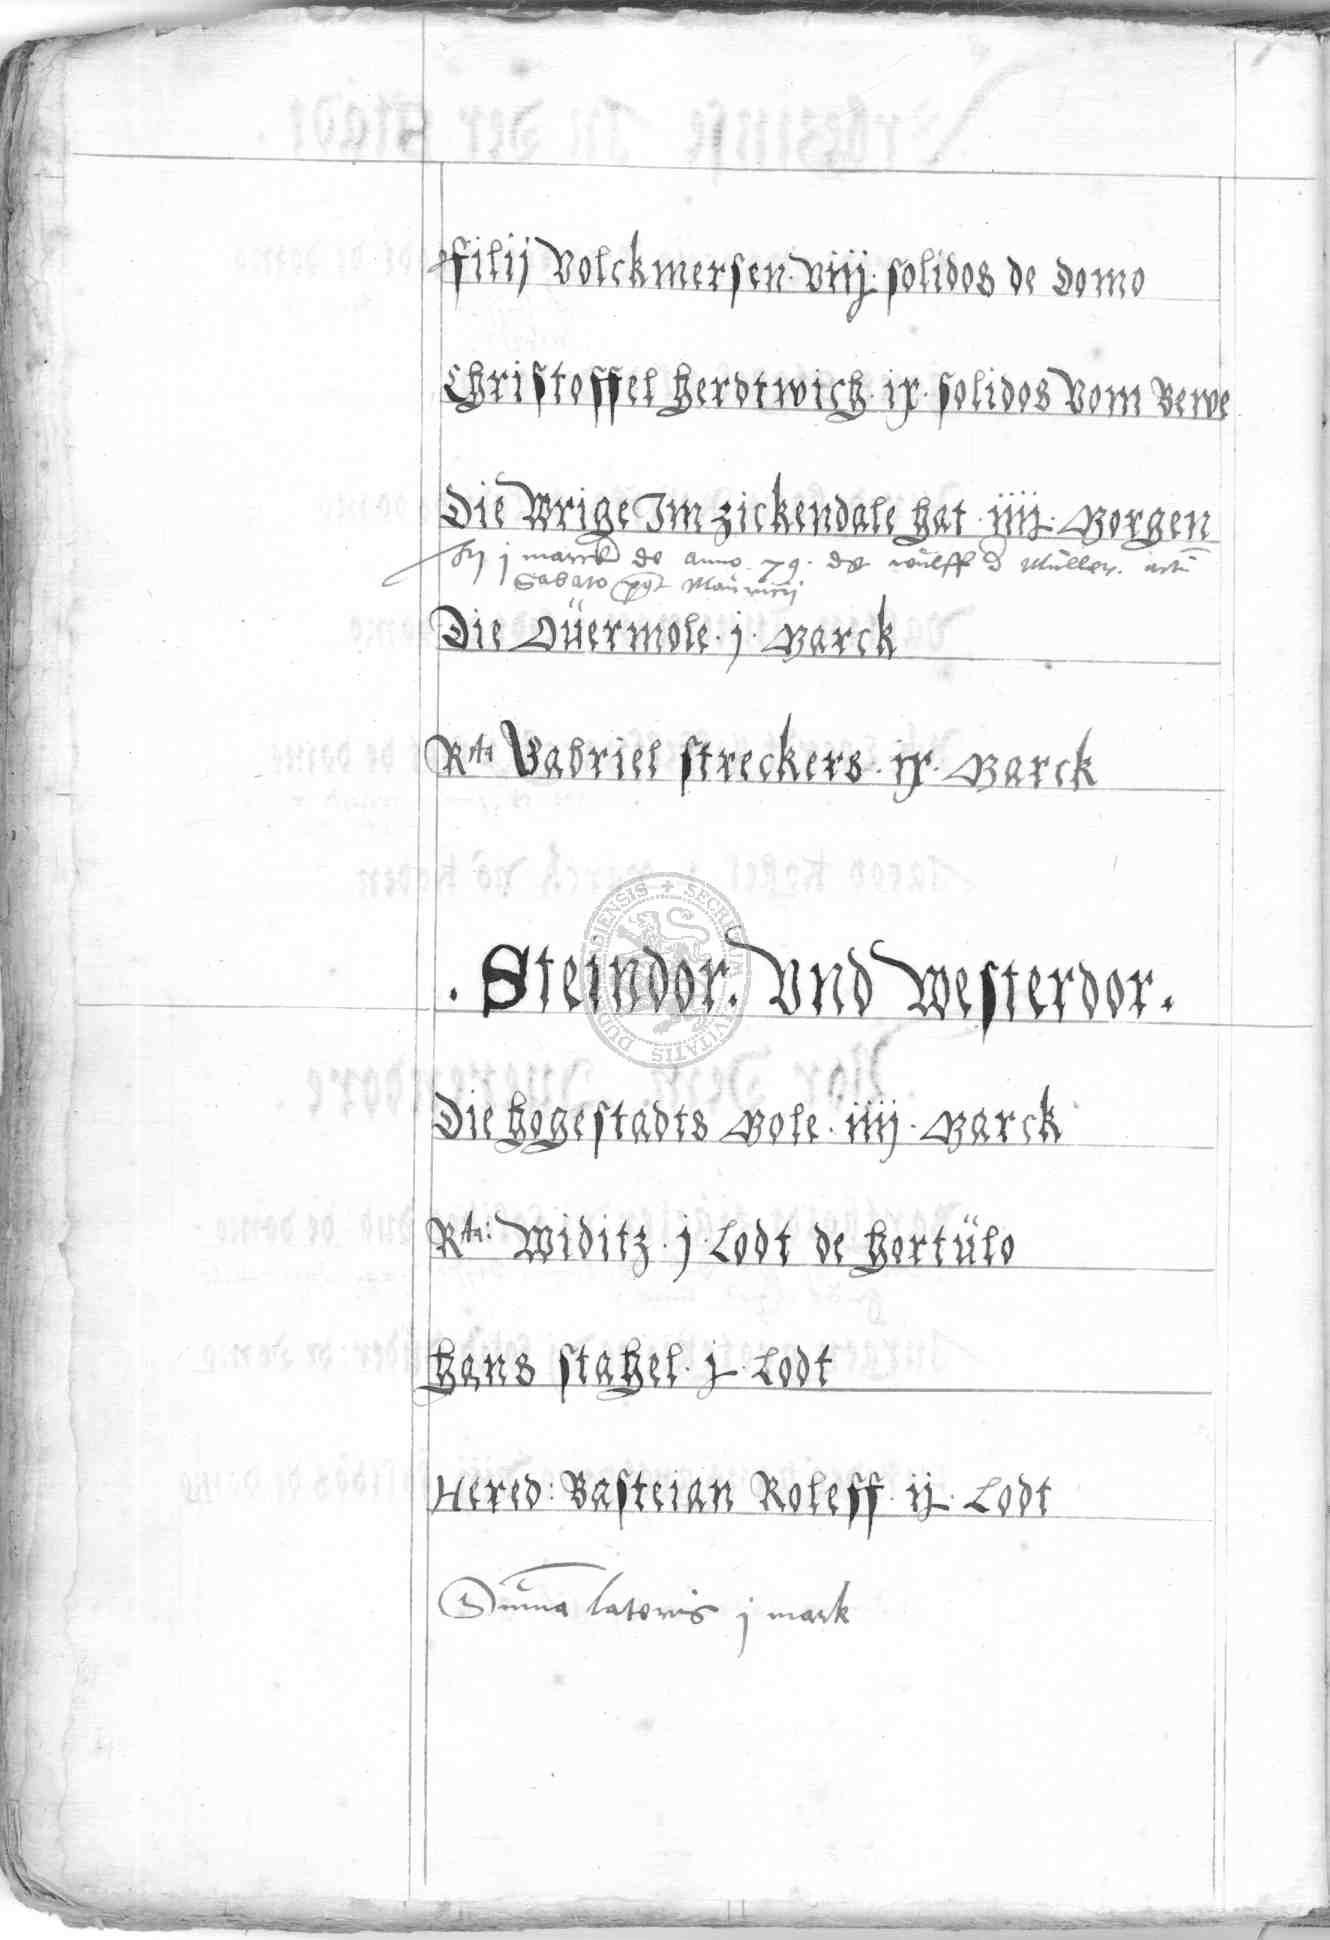 Filij Volckmersen · viij · solidos de domo
Christoffel Herdtwich · ix · solidos vom Bewe
Die Wrige Im zickendale hat · iiij · Morgen
j marck de anno 79 · wulff Müller
Sabato post Mauricij
Die Düermole · j · Marck
Rta Gabriel streckers · ix · Marck
· Steindor · Vnd Westerdor ·
Die hogestadts Mole · iiij · Marck
Rta: Widitz · j · Lodt de hortülo
Hans stahel · j · Lodt
Hered: Basteian Roleff · ij · Lodt
Suma lateris j mark